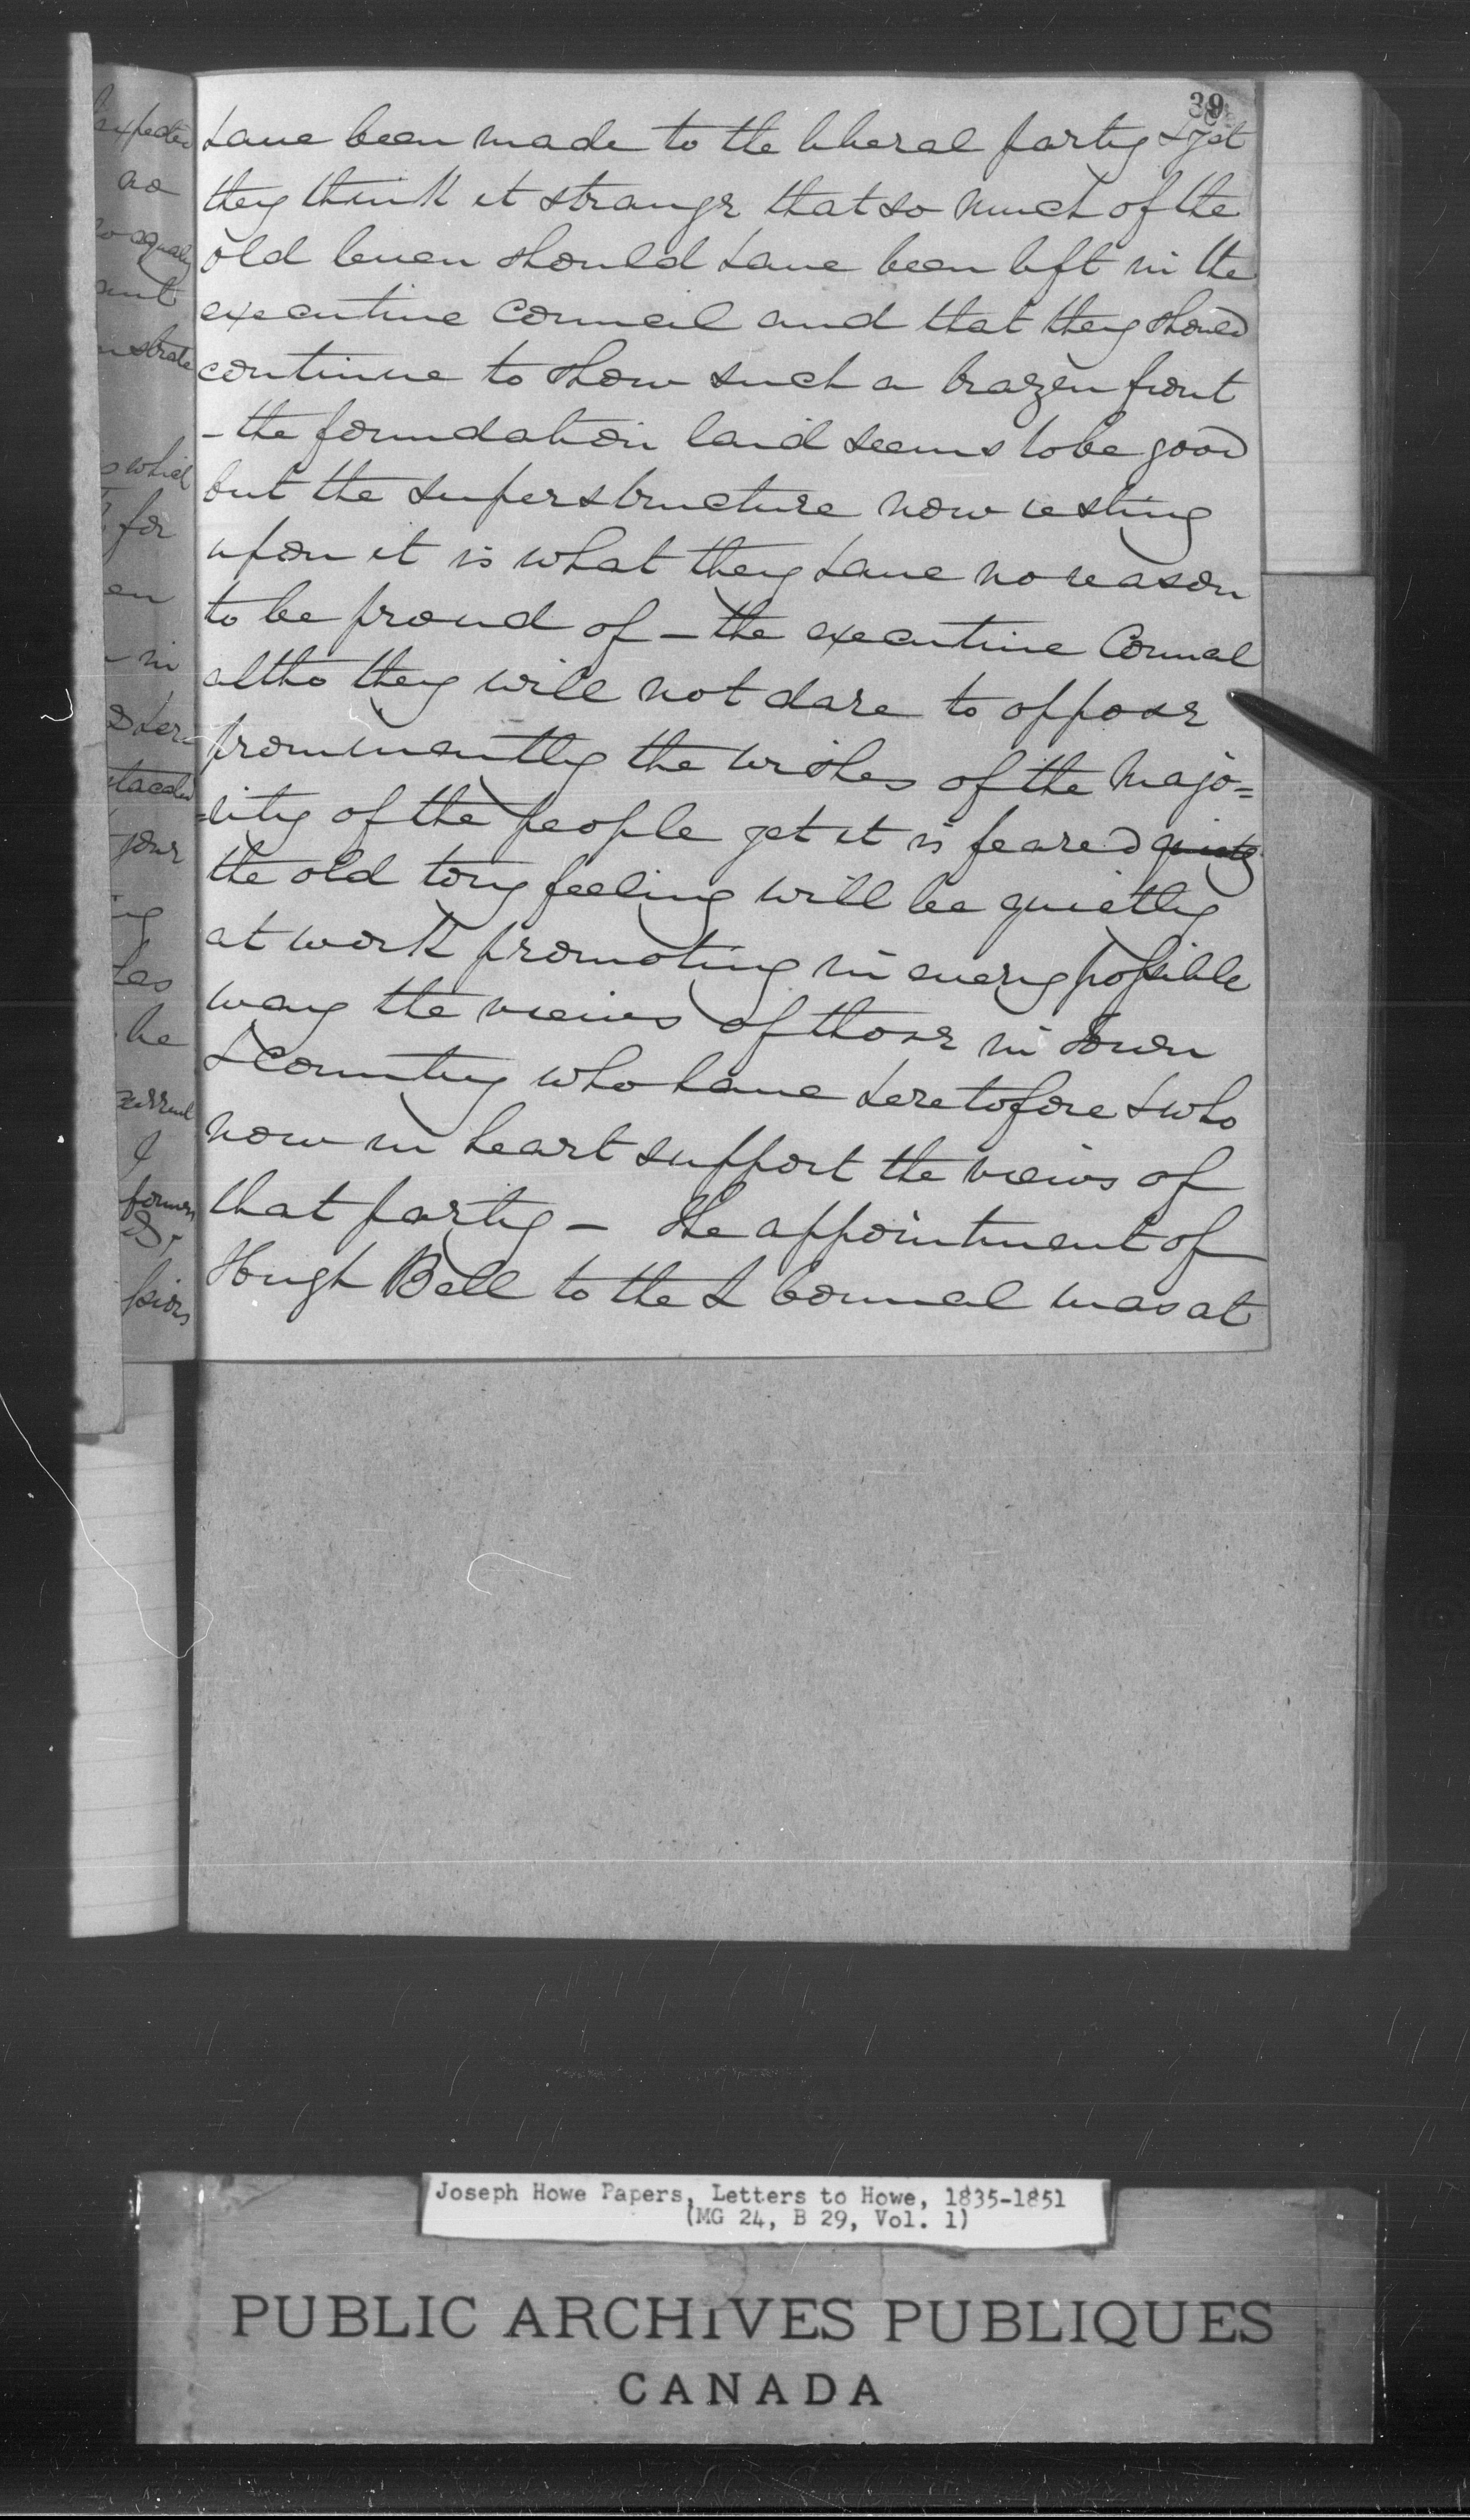 39
have been made to the liberal party & yet
they think it strange that so much of the
old leven should have been left in the
executive Council and that they should
continue to show such a brazen front
- the foundation laid seems to be good
but the superstructure now resting
upon it is what they have no reason
to be proud of - the executive Council
altho they will not dare to oppose
prominently the wishes of the Majo=
=rity of the people yet it is feared
the old tory feeling will be quietly
at work promoting in every possible
way the views of those in Town
& Country who have heretofore & who
now in heart support the views of
that party - The appointment of
Hugh Bell to the L Council was at
no
for
en
in
your
has
he
Joseph Howe Papers, Letters to Howe, 1835-1851
(MG 24, B 29, Vol. 1)
PUBLIC ARCHIVES PUBLIQUES
CANADA